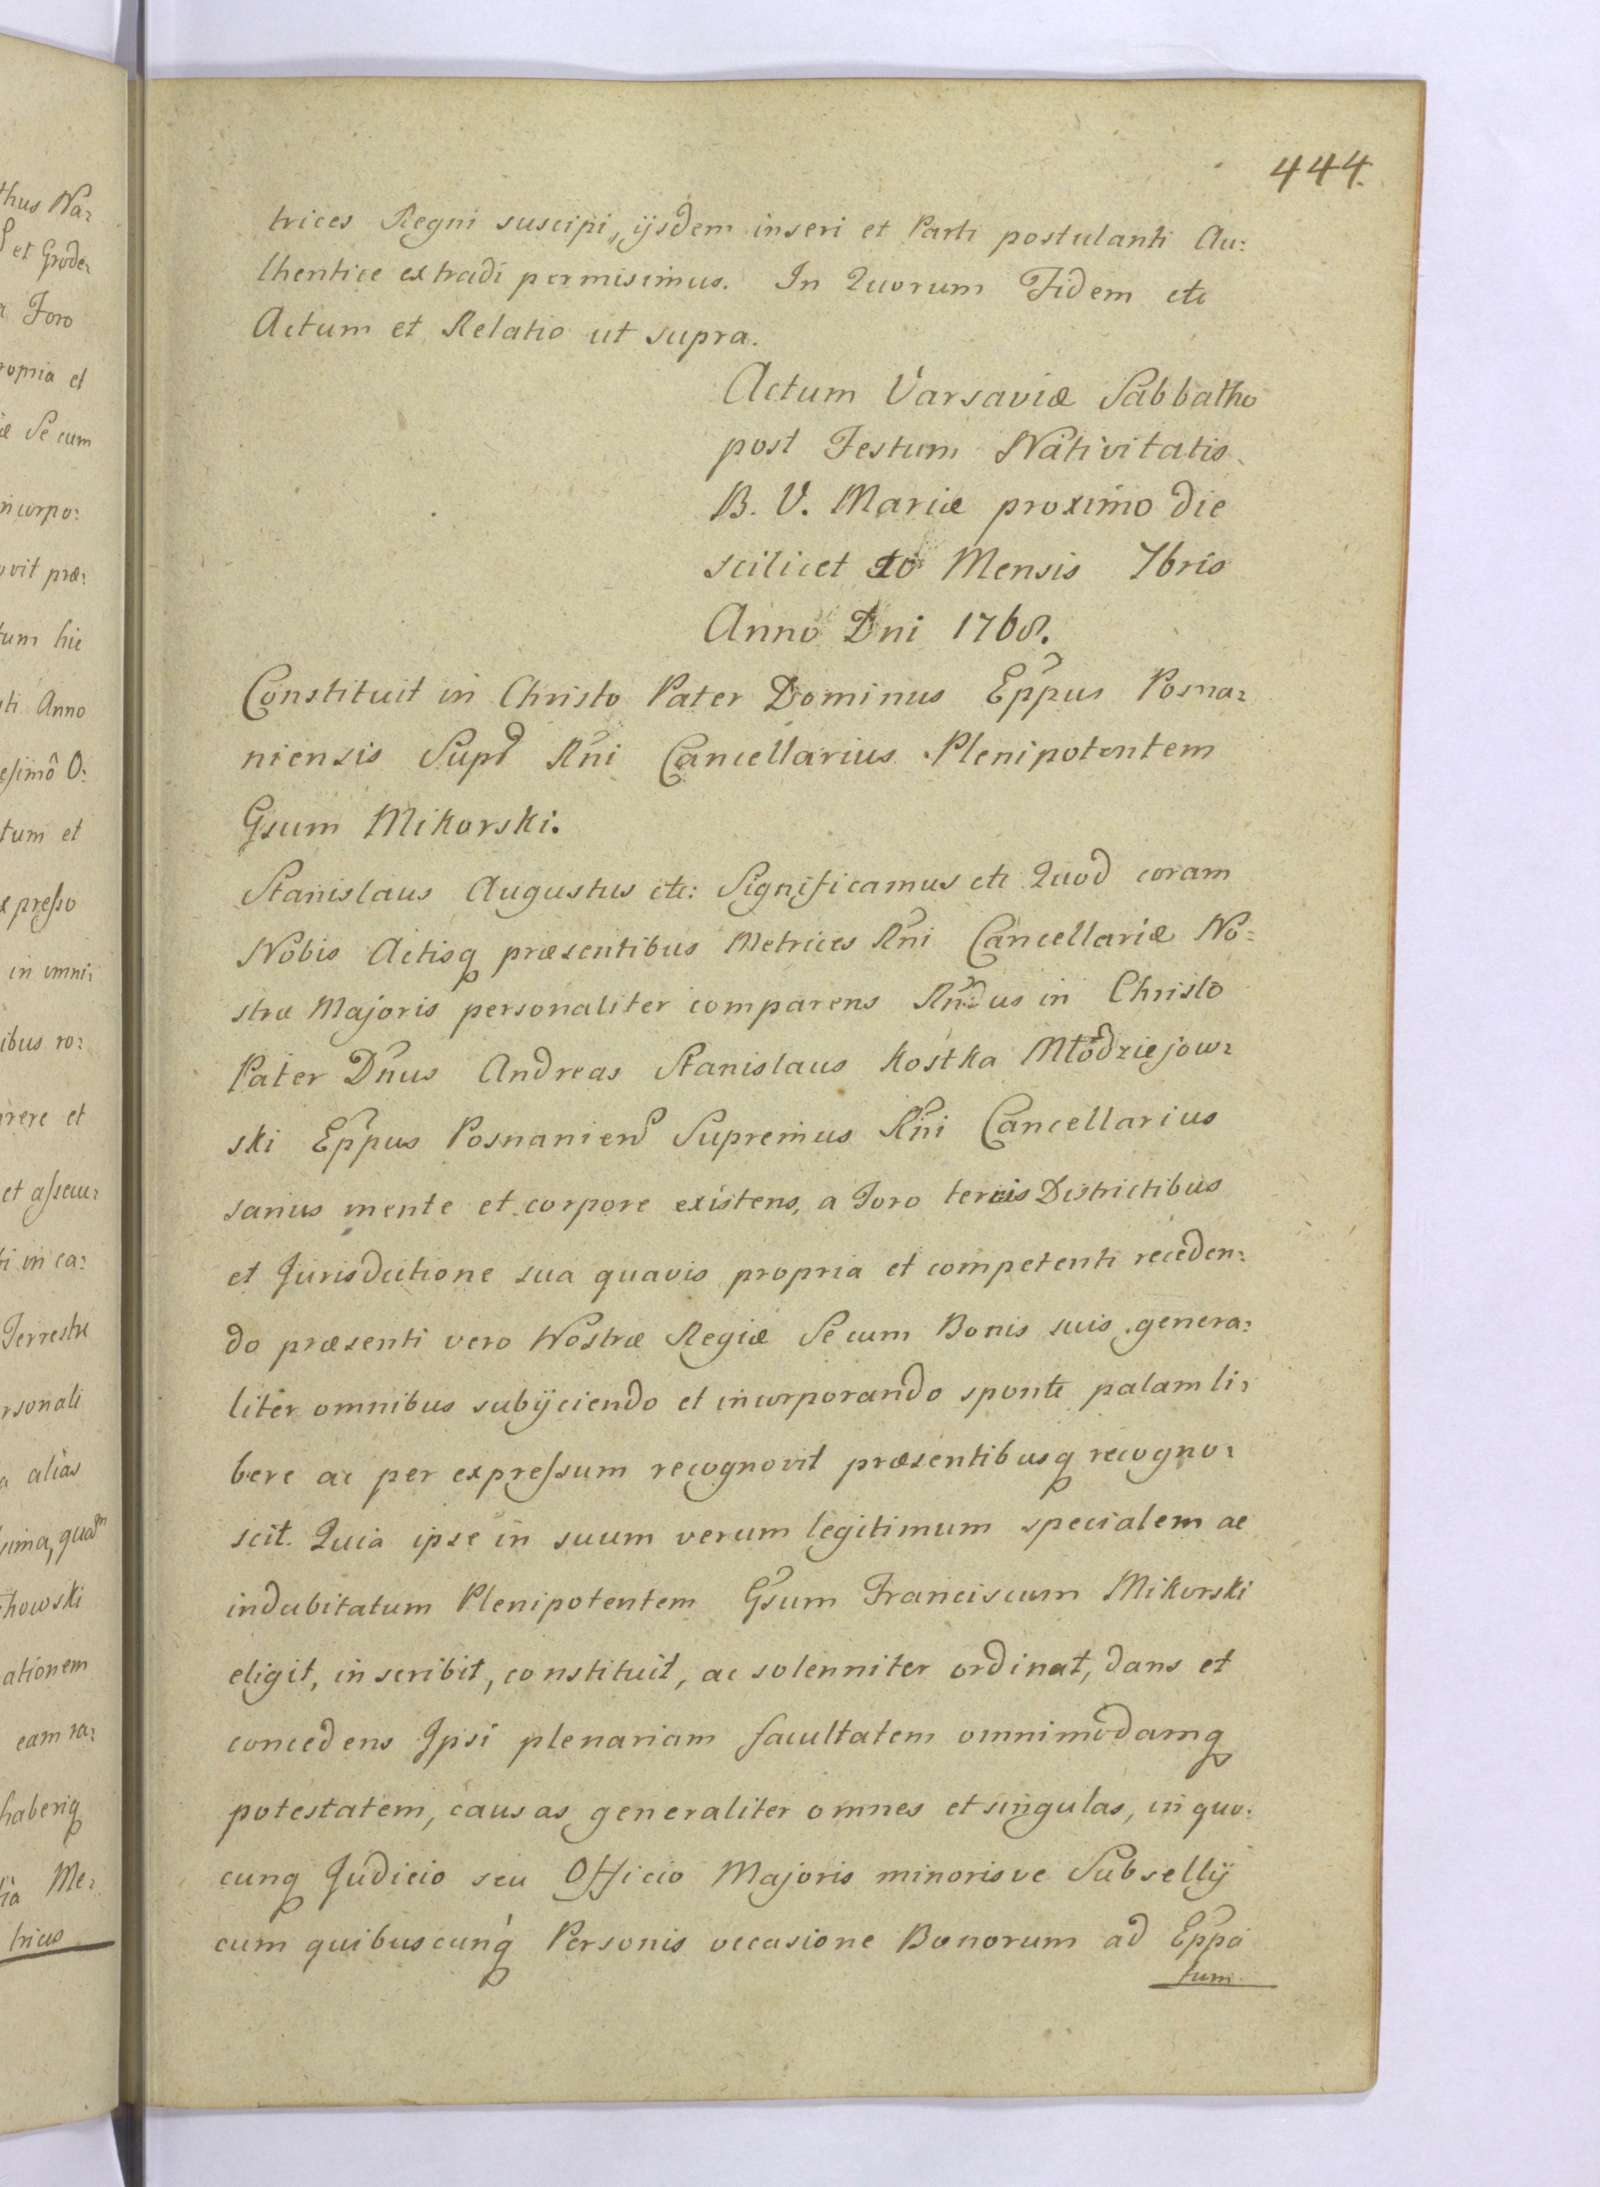 444.
trices Regni suscipi, ijsdem inseri et Parti postulanti Au:
thentice extradi permisimus. In Quorum Fidem etc
Actum et Relatio ut supra.
Actum Varsaviæ Sabbatho
post Festum Nativitatis
B. V. Mariæ proximo die
scilicet 10 Mensis 7bris
Anno Dni 1768.
Constituit in Christo Pater Dominus Eppus Posna:
niensis Supr Rni Cancellarius Plenipotentem
Gsum Mikorski.
Stanislaus Augustus etc: Significamus etc Quod coram
Nobis Actisq præsentibus Metrices Rni Cancellariæ No:
stræ Majoris personaliter comparens Rndus in Christo
Pater Dnus Andreas Stanislaus Kostka Młodziejow:
ski Eppus Posnanien Supremus Rni Cancellarius
sanus mente et corpore existens, a Foro terris Districtibus
et Jurisdictione sua quavis propria et competenti receden:
do præsenti vero Nostræ Regiæ Se cum Bonis suis genera:
liter omnibus subijciendo et incorporando sponte palam li:
bere ac per expressum recognovit præsentibusq recogno:
scit. Quia ipse in suum verum legitimum specialem ac
indubitatum Plenipotentem Gsum Franciscum Mikorski
eligit, inscribit, constituit, ac solenniter ordinat, dans et
concedens Ipsi plenariam facultatem omnimodamq
potestatem, causas generaliter omnes et singulas, in quo:
cunq Judicio seu Officio Majoris minorisve Subsellij
cum quibuscunq Personis occasione Bonorum ad Eppa
tum
thus Na:
et Grode:
a Foro
ropria et
æ Se cum
incorpo:
ovit præ:
tum hic
ti Anno
esimô O:
tum et
expresso
in omni:
ibus ro:
rere et
et assecu:
ti in ca:
Terrestri
rsonali
a alias
sima, quam
howski
ationem
eam ra:
haberiq
ia Me:
trices